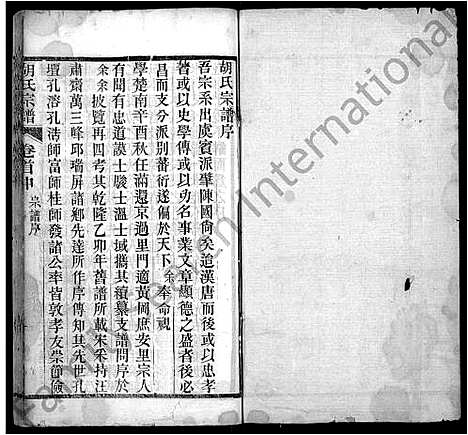 胡氏宗譜序
吾宗系出虞賓派肇陳國尚矣追漢唐而後或以忠孝
著或以史學傳或以勳功名事業文章顯德之盛者後必
昌而支分派別蕃衍遂徧於天下余奉命視
學楚南辛酉秋任滿還京過里門適黃岡庶安里宗人
有聞有忠道謨士駿士溫士域攜其續纂支譜問序於
余余披覽再四考其乾隆乙卯年舊譜所載宋釆持汪
肅齋萬三峰邱瑞屏諸鄉先達所作序傳知其先世孔
壇孔溶孔浩師富師桂師發諸公率皆敦孝友崇節儉
胡氏宗譜
卷首中
宗譜序
International